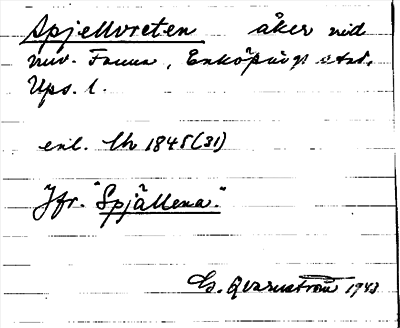 Spjellvreten åker vid
nuv. Fanna, Enköpings stad.
Ups. l.
enl. Lk 1845(31)
Jfr. "Spjällena."
G. Qvarnström 1943